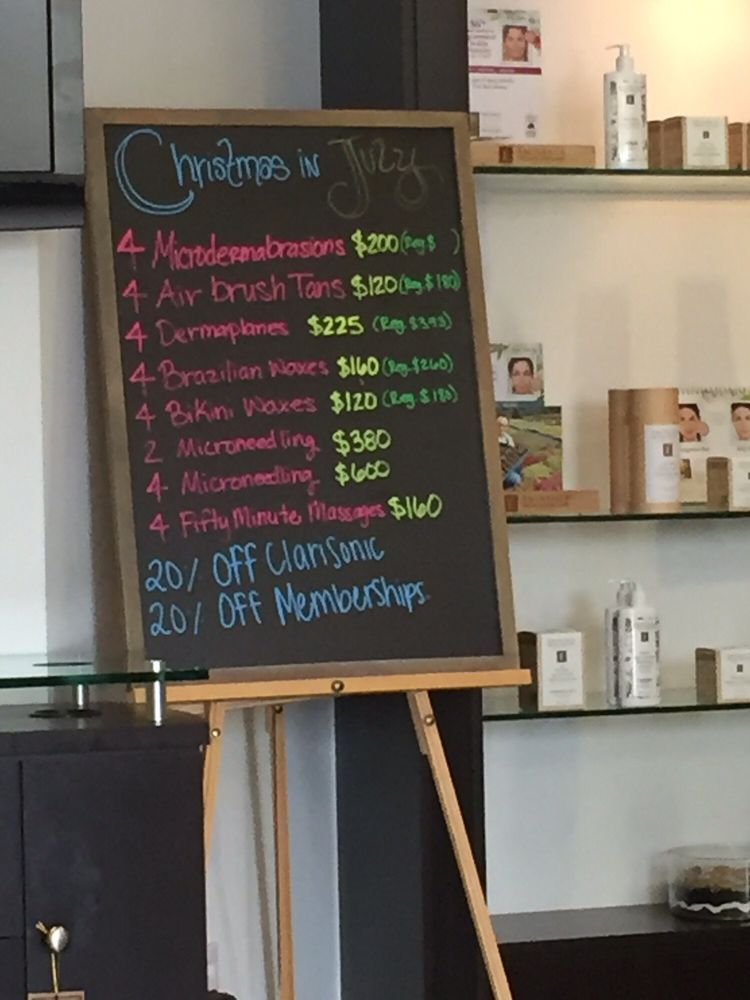 Christmas in July
4 Microdermabrasions $200 (Reg. $ )
4 Air brush Tans $120 (Reg. $180)
4 Dermaplanes $225 (Reg. $393)
4 Brazilian Waxes $160 (Reg. $260)
4 Bikini Waxes $120 (Reg. $180)
2 Microneedling $380
4 Microneedling $600
4 Fifty Minute Massages $160
20% Off Clarisonic
20% Off Memberships